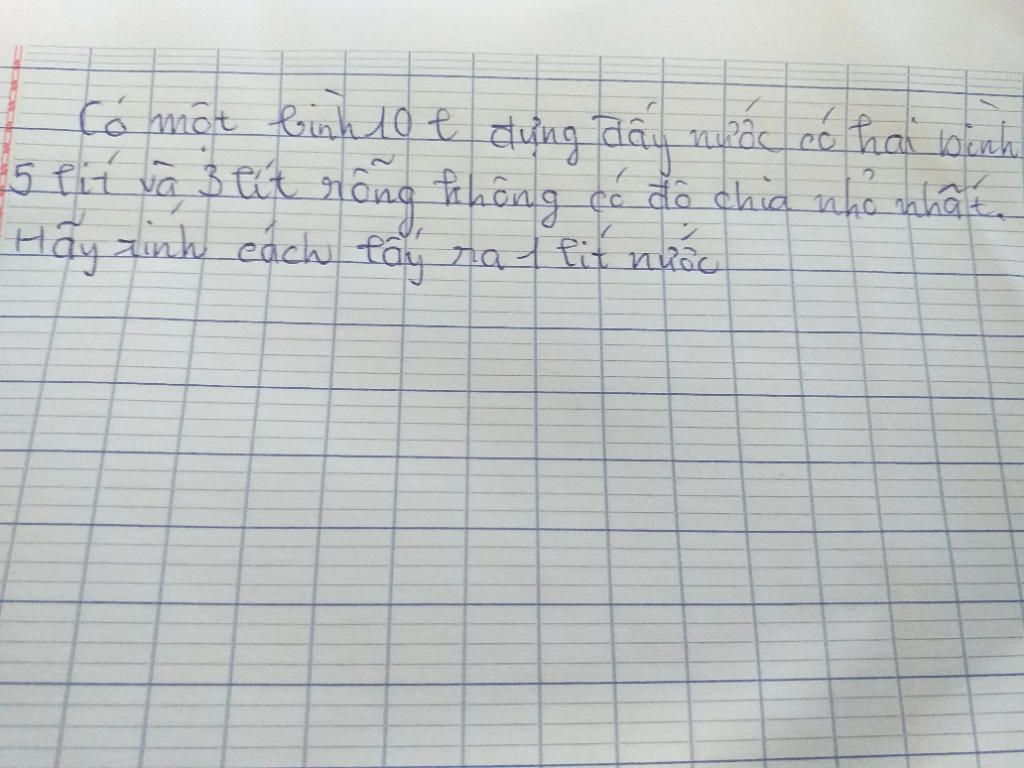 Có một bình 10 l đựng đầy nước có hai bình
5 lít và 3 lít rỗng không có độ chia nhỏ nhất.
Hãy tính cách lấy ra 1 lít nước